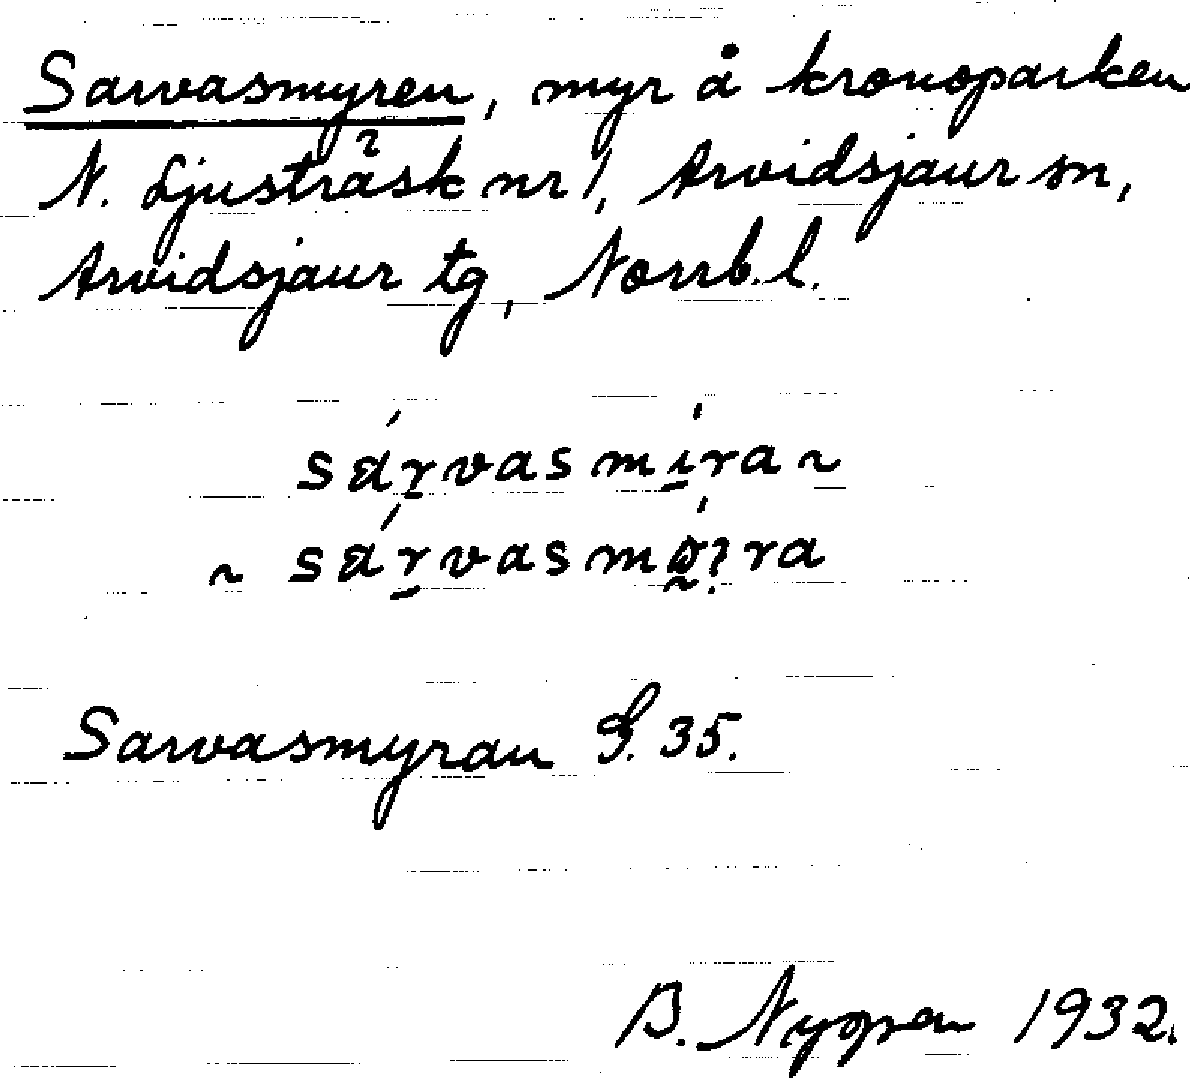 Sarvasmyren, myr å kronoparken
N. Ljusträsk nr 1, Arvidsjaur sn,
Arvidsjaur tg, Norrb. l.
sárvasmíra ~
~ sárvas
Sarvasmyran S. 35.
B. 1932.